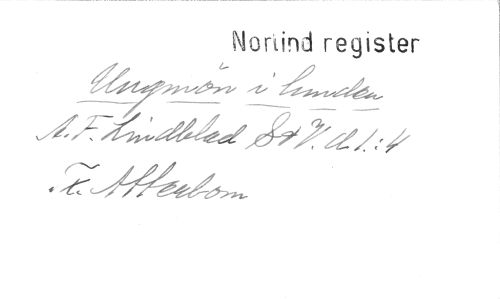 Norlind register
Ungmön i lunden
A. F. Lindblad S o V. d. 1:4
T. x. Atterbom